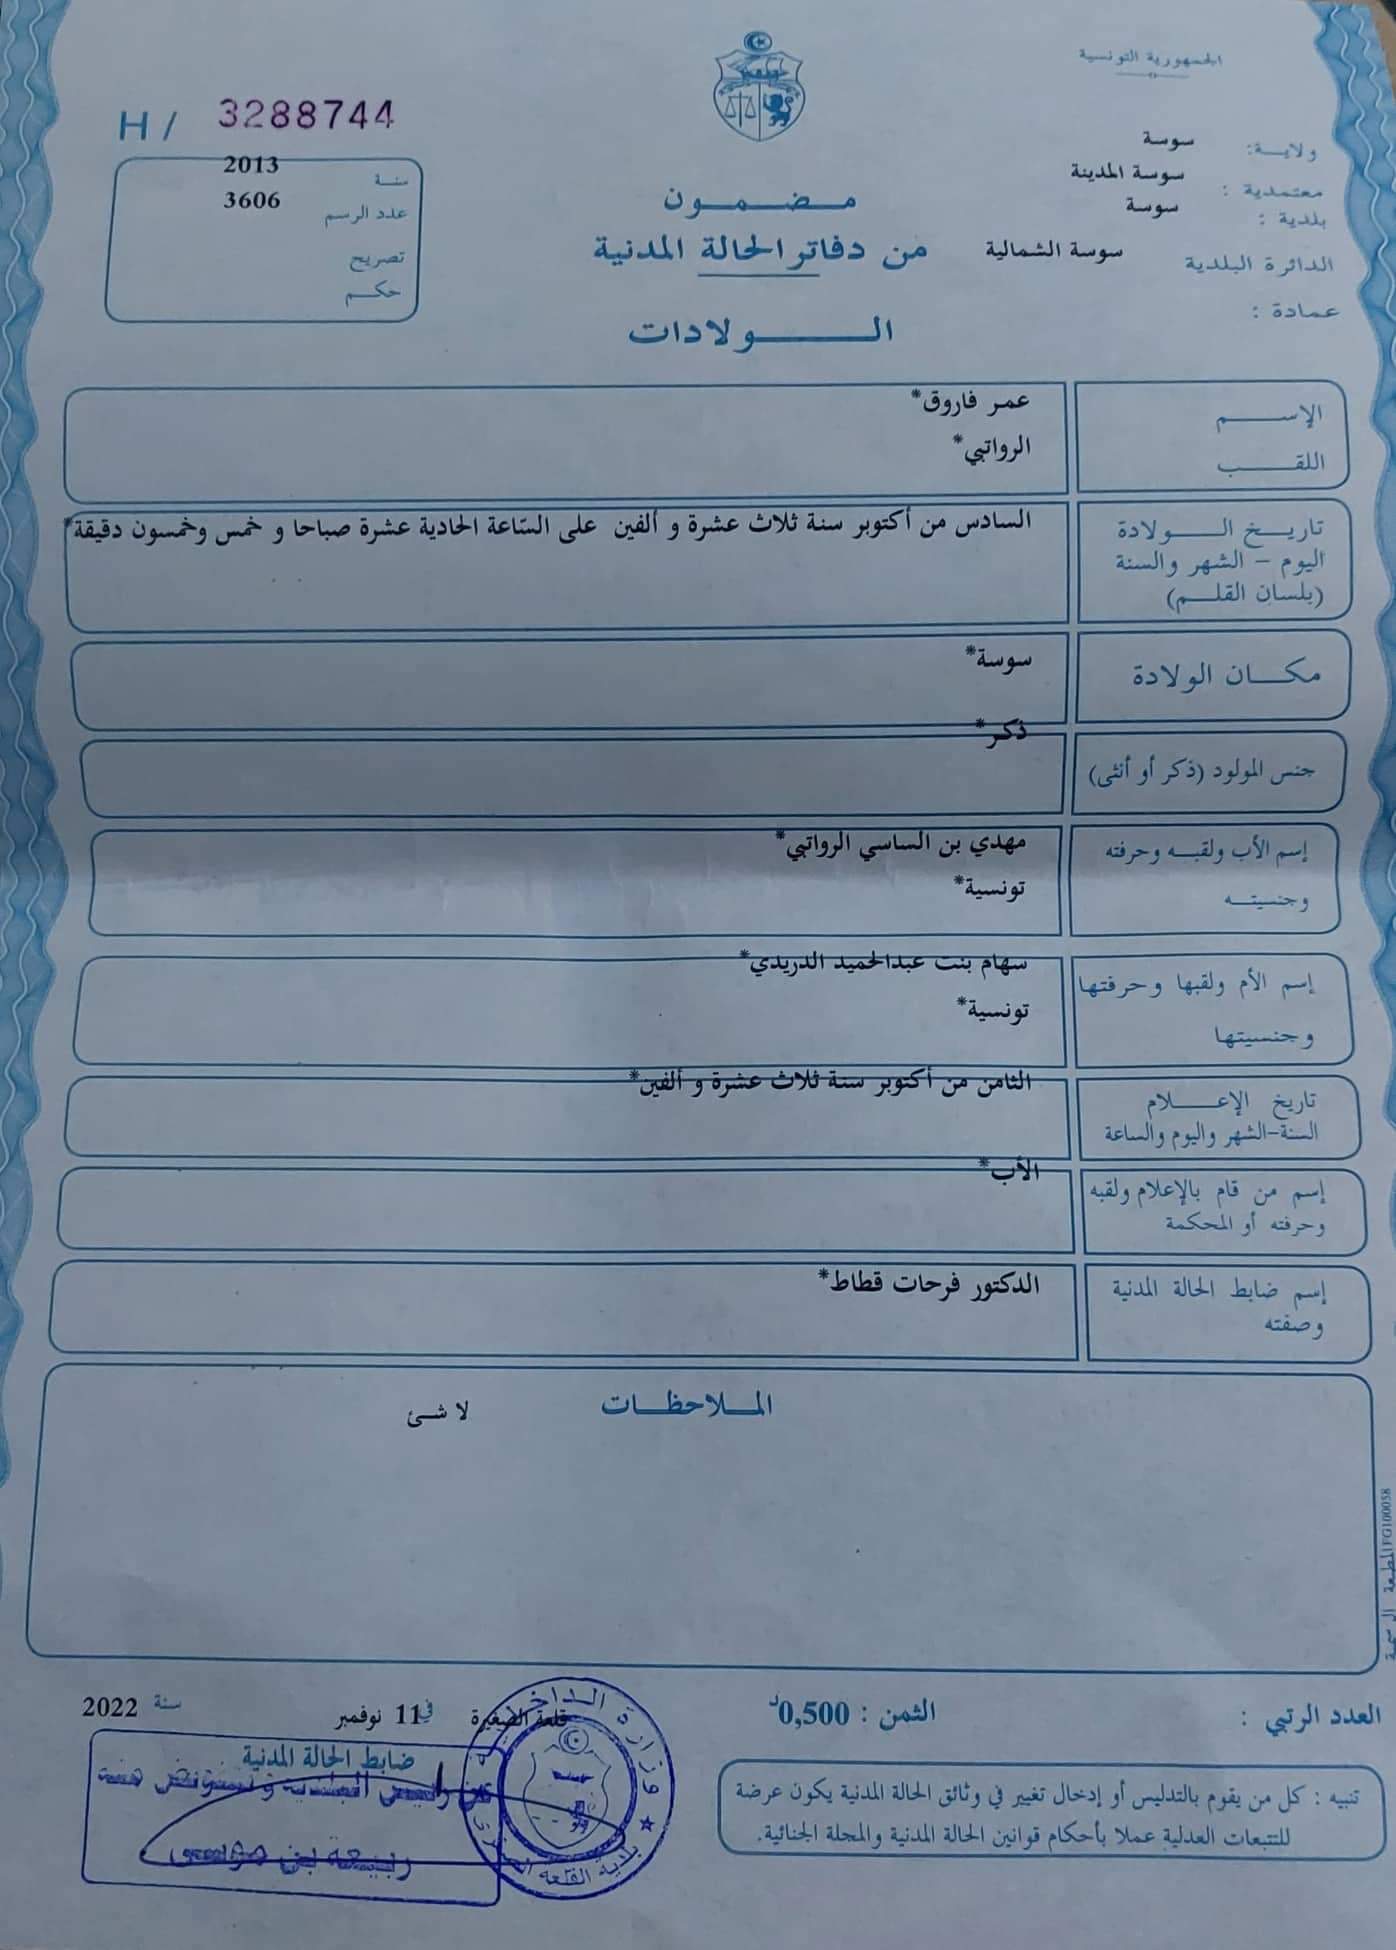 الجمهورية التونسية
ولاية: سوسة
معتمدية: سوسة المدينة
بلدية: سوسة
الدائرة البلدية سوسة الشمالية
عمادة:
H / 3288744
سنة 2013
عدد الرسم 3606
تصريح
حكم
مضمون
من دفاتر الحالة المدنية
الولادات
الإسم عمر فاروق*
اللقب الرواتبي*
تاريخ الولادة السادس من أكتوبر سنة ثلاث عشرة و ألفين على السّاعة الحادية عشرة صباحا و خمس وخمسون دقيقة*
اليوم - الشهر والسنة
(بلسان القلم)
مكان الولادة سوسة*
جنس المولود (ذكر أو أنثى) ذكر*
إسم الأب ولقبه وحرفته مهدي بن الساسي الرواتبي*
وجنسيته تونسية*
إسم الأم ولقبها وحرفتها سهام بنت عبدالحميد الدريدي*
وجنسيتها تونسية*
تاريخ الإعلام الثامن من أكتوبر سنة ثلاث عشرة و ألفين*
السنة-الشهر واليوم والساعة
إسم من قام بالإعلام ولقبه الأب*
وحرفته أو المحكمة
إسم ضابط الحالة المدنية الدكتور فرحات قطاط*
وصفته
الملاحظات لا شئ
العدد الرتبي : الثمن : 0,500د
قلعة الصغيرة في 11 نوفمبر سنة 2022
ضابط الحالة المدنية
عن رئيس البلدية و بتفويض منه
ربيعة بن موسى
وزارة الداخلية
بلدية القلعة الصغرى
تنبيه : كل من يقوم بالتدليس أو إدخال تغيير في وثائق الحالة المدنية يكون عرضة
للتتبعات العدلية عملا بأحكام قوانين الحالة المدنية والمجلة الجنائية.
FG100058